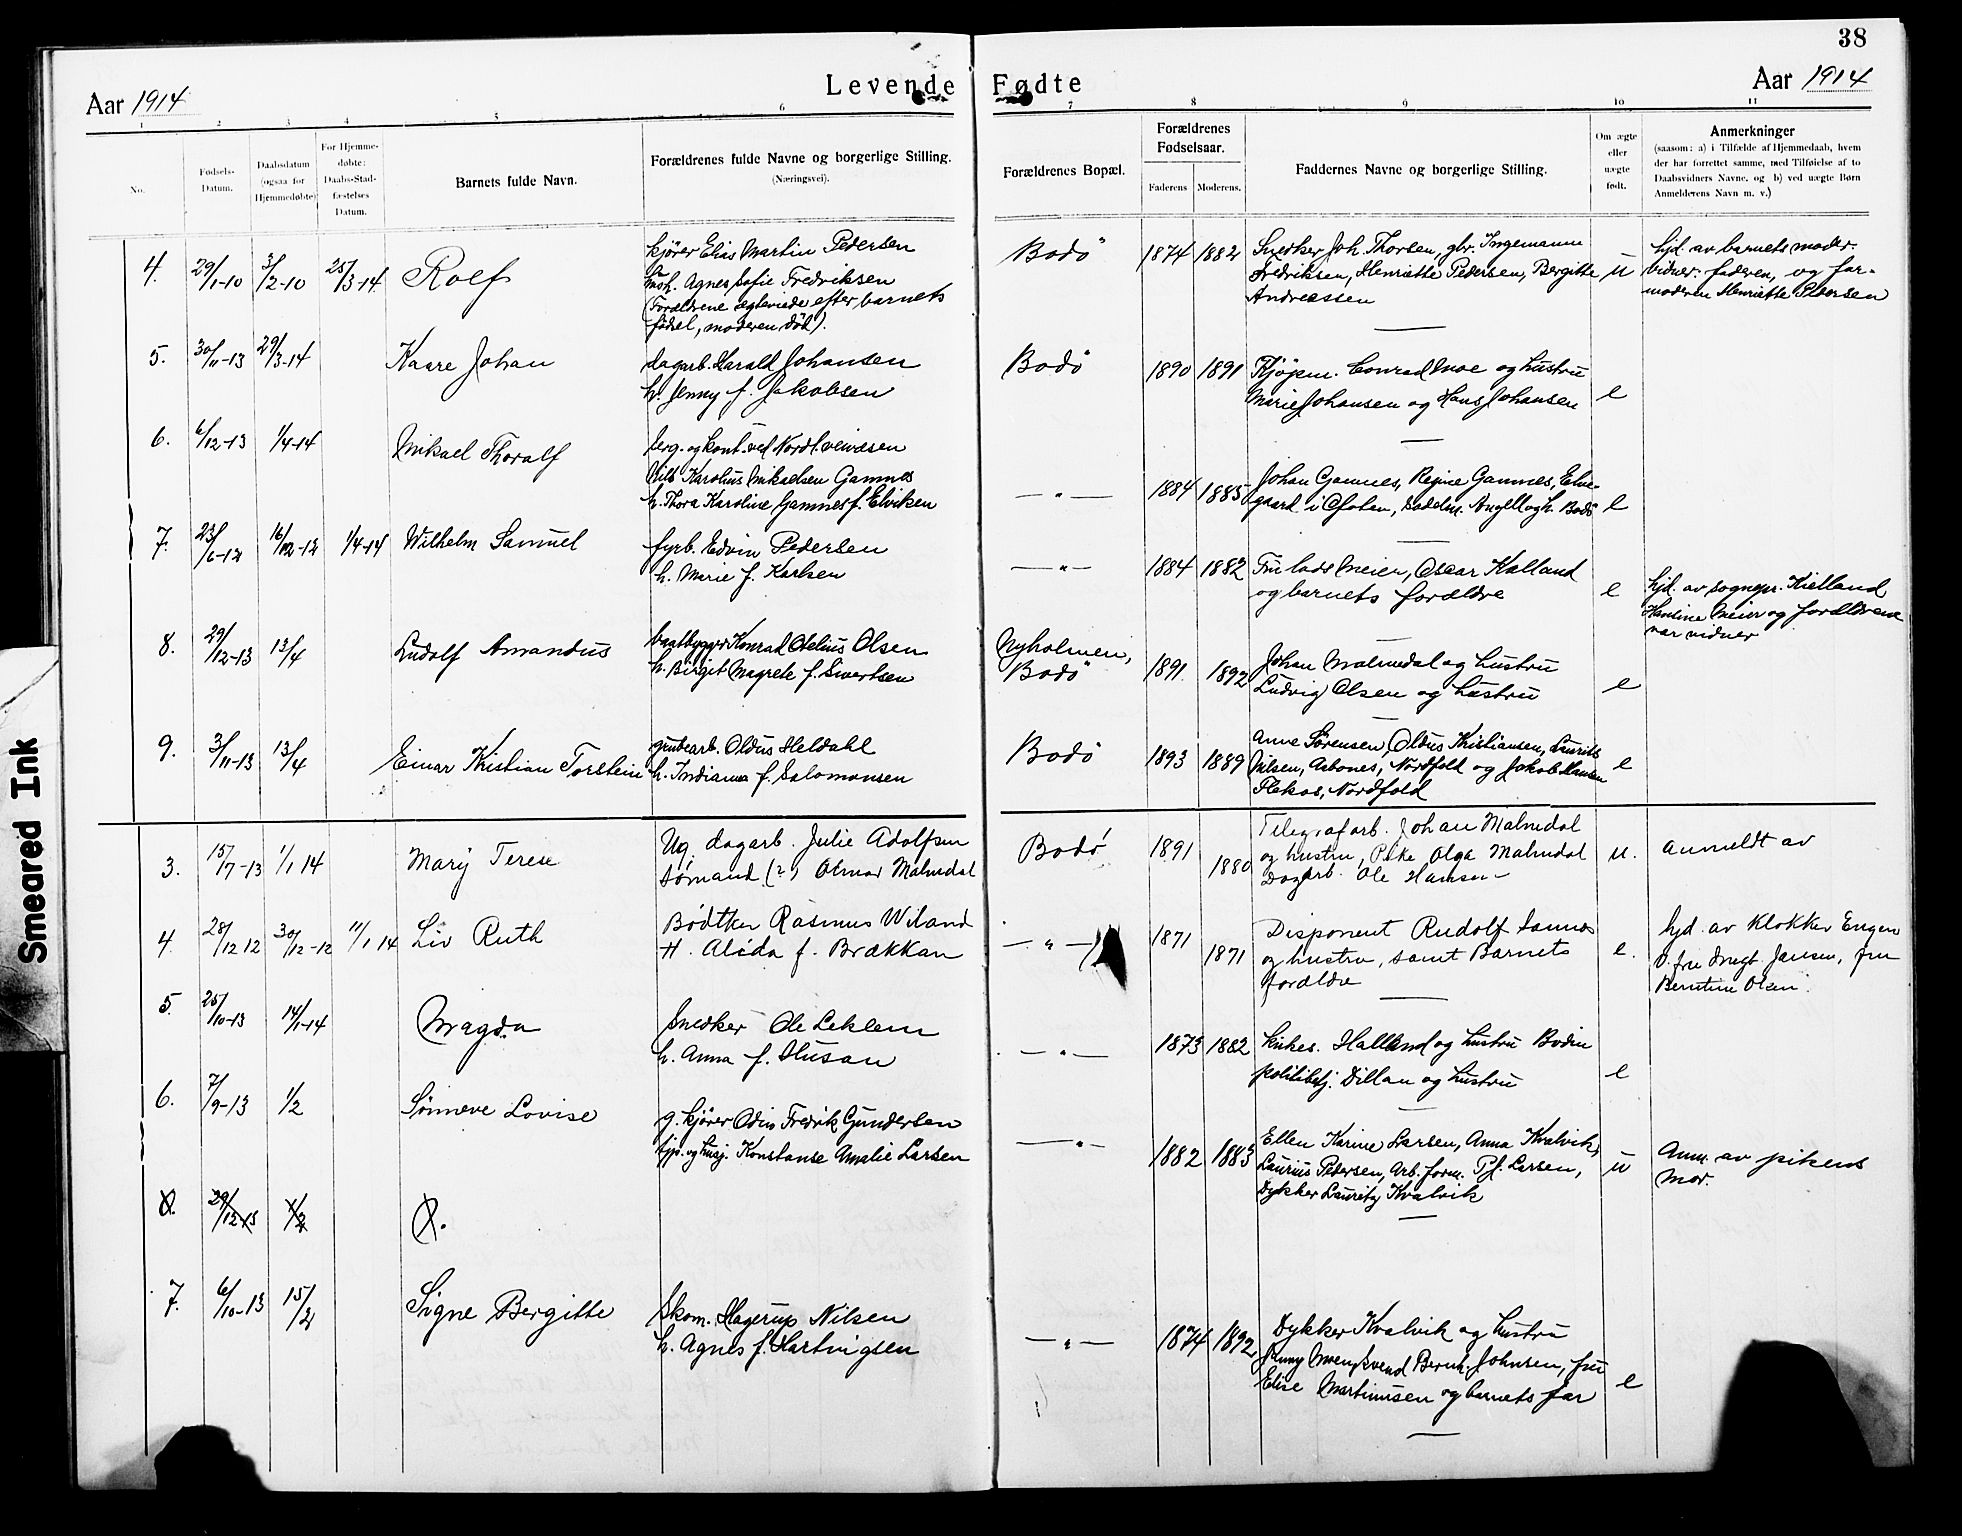 38
Levende Fødte
Aar 1914
Aar 1914
1 2 3 4 5 6 7 8 9 10 11
No.
Fødsels-Datum.
Daabsdatum (ogsaa for Hjemmedøbte)
For Hjemme-døbte: Daabs-Stad-fæstelses Datum.
Barnets fulde Navn.
Forældrenes fulde Navne og borgerlige Stilling.
(Næringsvei).
Forældrenes Bopæl.
Forældrenes Fødselsaar.
Faderens Moderens.
Faddernes Navne og borgerlige Stilling.
Om ægte eller uægte født.
Anmerkninger
(saasom: a) i Tilfælde af Hjemmedaab, hvem
der har forrettet samme, med Tilføielse af to
Daabsvidners Navne, og b) ved uægte Børn
Anmelderens Navn m. v.)
4. 29/1-10 3/2-10 25/3-14 Rolf
kjører Elias Martin Pedersen
Agnes Sofie Fredriksen
(Forældrene ægteviede efter barnets
fødsel, moderen död).
Bodö 1874 1882
Snedker Joh. Thorsen, gbr. Ingemann
Fredriksen, Henriette Pedersen, Bergitte
Andreassen
u
hjd. av barnets moder.
Vidner: faderen, og far-
moderen Henriette Pedersen
5. 30/11-13 29/3-14 Kaare Johan
dagarb. Harald Johansen
h. Jenny f. Jakobsen
Bodö 1890 1891
Kjøpm. Conrad Moe og hustru
Marie Johansen og Hans Johansen
e
6. 6/12-13 1/4-14 Mikael Thoralf
og kont. ved Nordl. veivæsen
Nils Karolius Mikaelsen Gamnes
h. Thora Karoline Gamnes f. Elviken
— " — 1884 1885
Johan Gamnes, Regine Gamnes, Elve-
gaard i Ofoten, Angell og h. Bodö
e
7. 23/6-12 16/12-12 1/4-14 Wilhelm Samuel
fyrb. Edvin Pedersen
h. Marie f. Karlsen
— " — 1884 1882
Meier, Oscar Kalland
og barnets forældre
e
hjd. av sognepr. Kielland
Hansine Meier og forældrene
var vidner
8. 29/12-13 13/4 Ludolf Amandus
baatbygger Konrad Otelius Olsen
h. Birgit Magrete f. Sivertsen
Nyholmen,
Bodö 1891. 1892
Johan Malmedal og hustru
Ludvig Olsen og hustru
e
9. 3/11-13 13/4 Einar Kristian Torstein
grubearb. Oldus Heldahl
h. Indianna f. Salomonsen
Bodö 1893 1889
Anne Sörensen, Oldus Kristiansen, Laurits
Nilsen, Asbones, Nordfold og Jakob Hansen
Nordfold
e
3. 15/7-13 1/1 14 Mary Terese
Ug. dagarb. Julie Adolfsen
Sømand (?) Otmar Malmedal
Bodö 1891 1880
Telegrafarb. Johan Malmedal
og hustru, Pike Olga Malmedal
Dagarb. Ole Hansen
u.
anmeldt av
4. 28/12 12 30/12-12 11/1 14 Liv Ruth
Bødtker Rasmus Wiland
H. Alida f. Brækkan
— " — 1871 1871
Disponent Rudolf Sannes
og hustru, samt Barnets
forældre
e.
hjd. av Klokker Engen
fru
Berntine Olsen.
5. 25/10-13 14/1-14 Magda
Snedker Ole Leklem
h. Anna f. Husan
— " — 1873 1882
Halland og hustru Bodin
politibetj. Dillan og hustru
e
6. 7/9-13 1/2 Sönneve Lovise
g. kjører Odin Fredrik Gundersen
Konstanse Amalie Larsen
— " — 1882 1883
Ellen Karine Larsen, Anna Kvalvik,
Laurius Pedersen, Arb. form. P. Larsen,
Dykker Lauritz Kvalvik
u
Anm. av pikens
Mor.
8. 29/12-13 1/2
7. 6/10-13 15/2 Signe Bergitte
Skom. Hagerup Nilsen
h. Agnes f. Hartvigsen
— " — 1874 1892
Dykker Kvalvik og hustru
Svend Bernh. Johnsen, fru
Elise Martinusen og barnets far
e
Smeared Ink